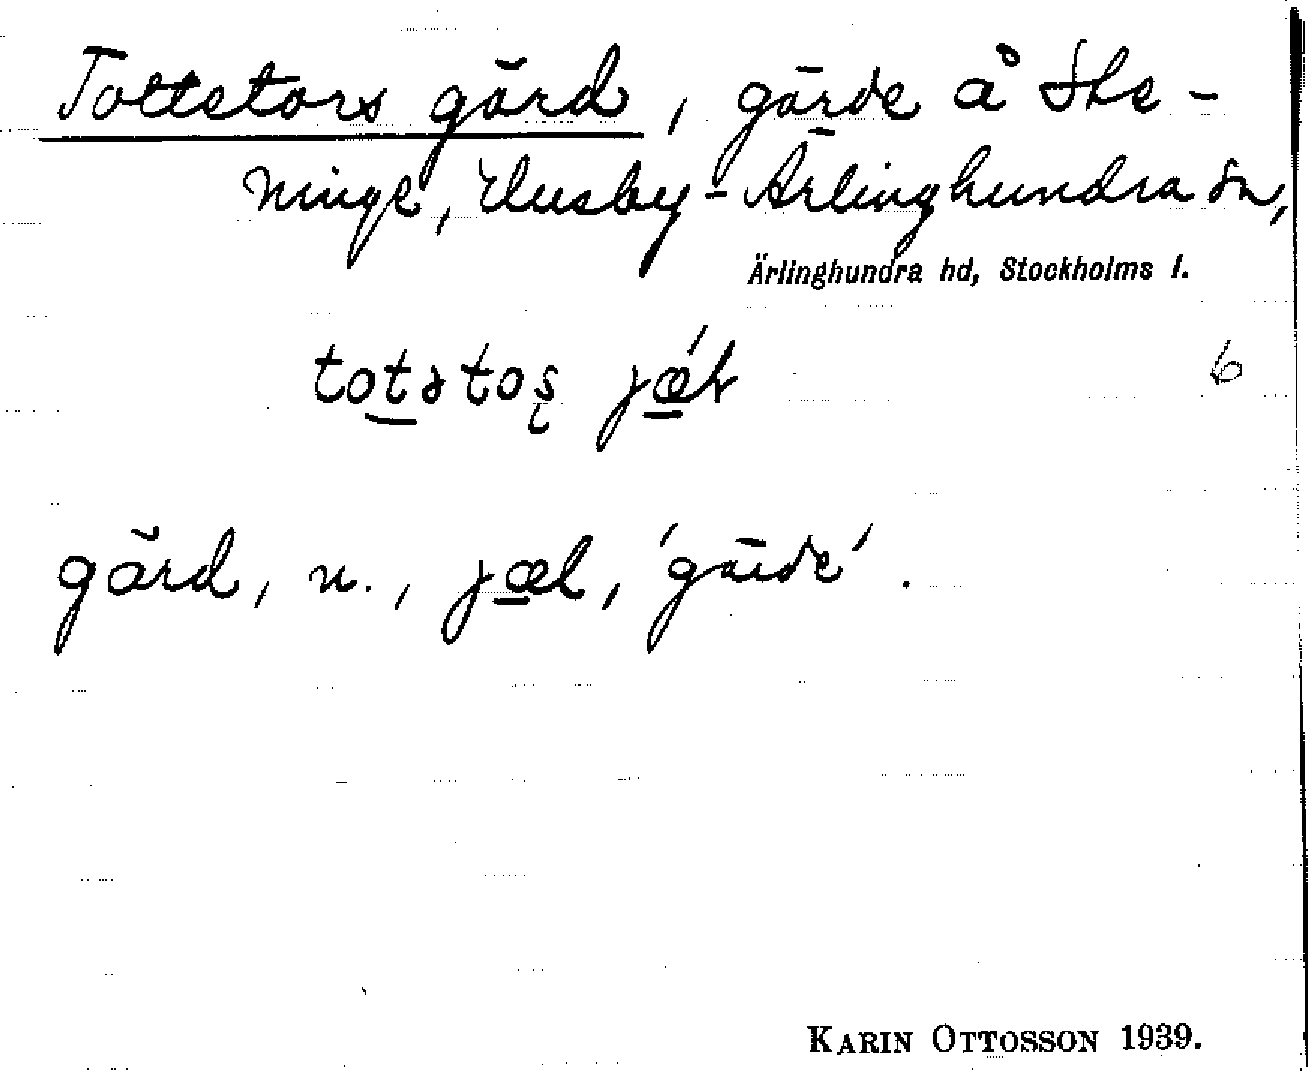 Tottetors gärd, gärde å Ste-
ninge, Husby-Ärlinghundra sn,
Ärlinghundra hd, Stockholms l.
totətoʂ jæ´ɭ
6
gärd, n., jæɭ, 'gärde'.
KARIN OTTOSSON 1939.